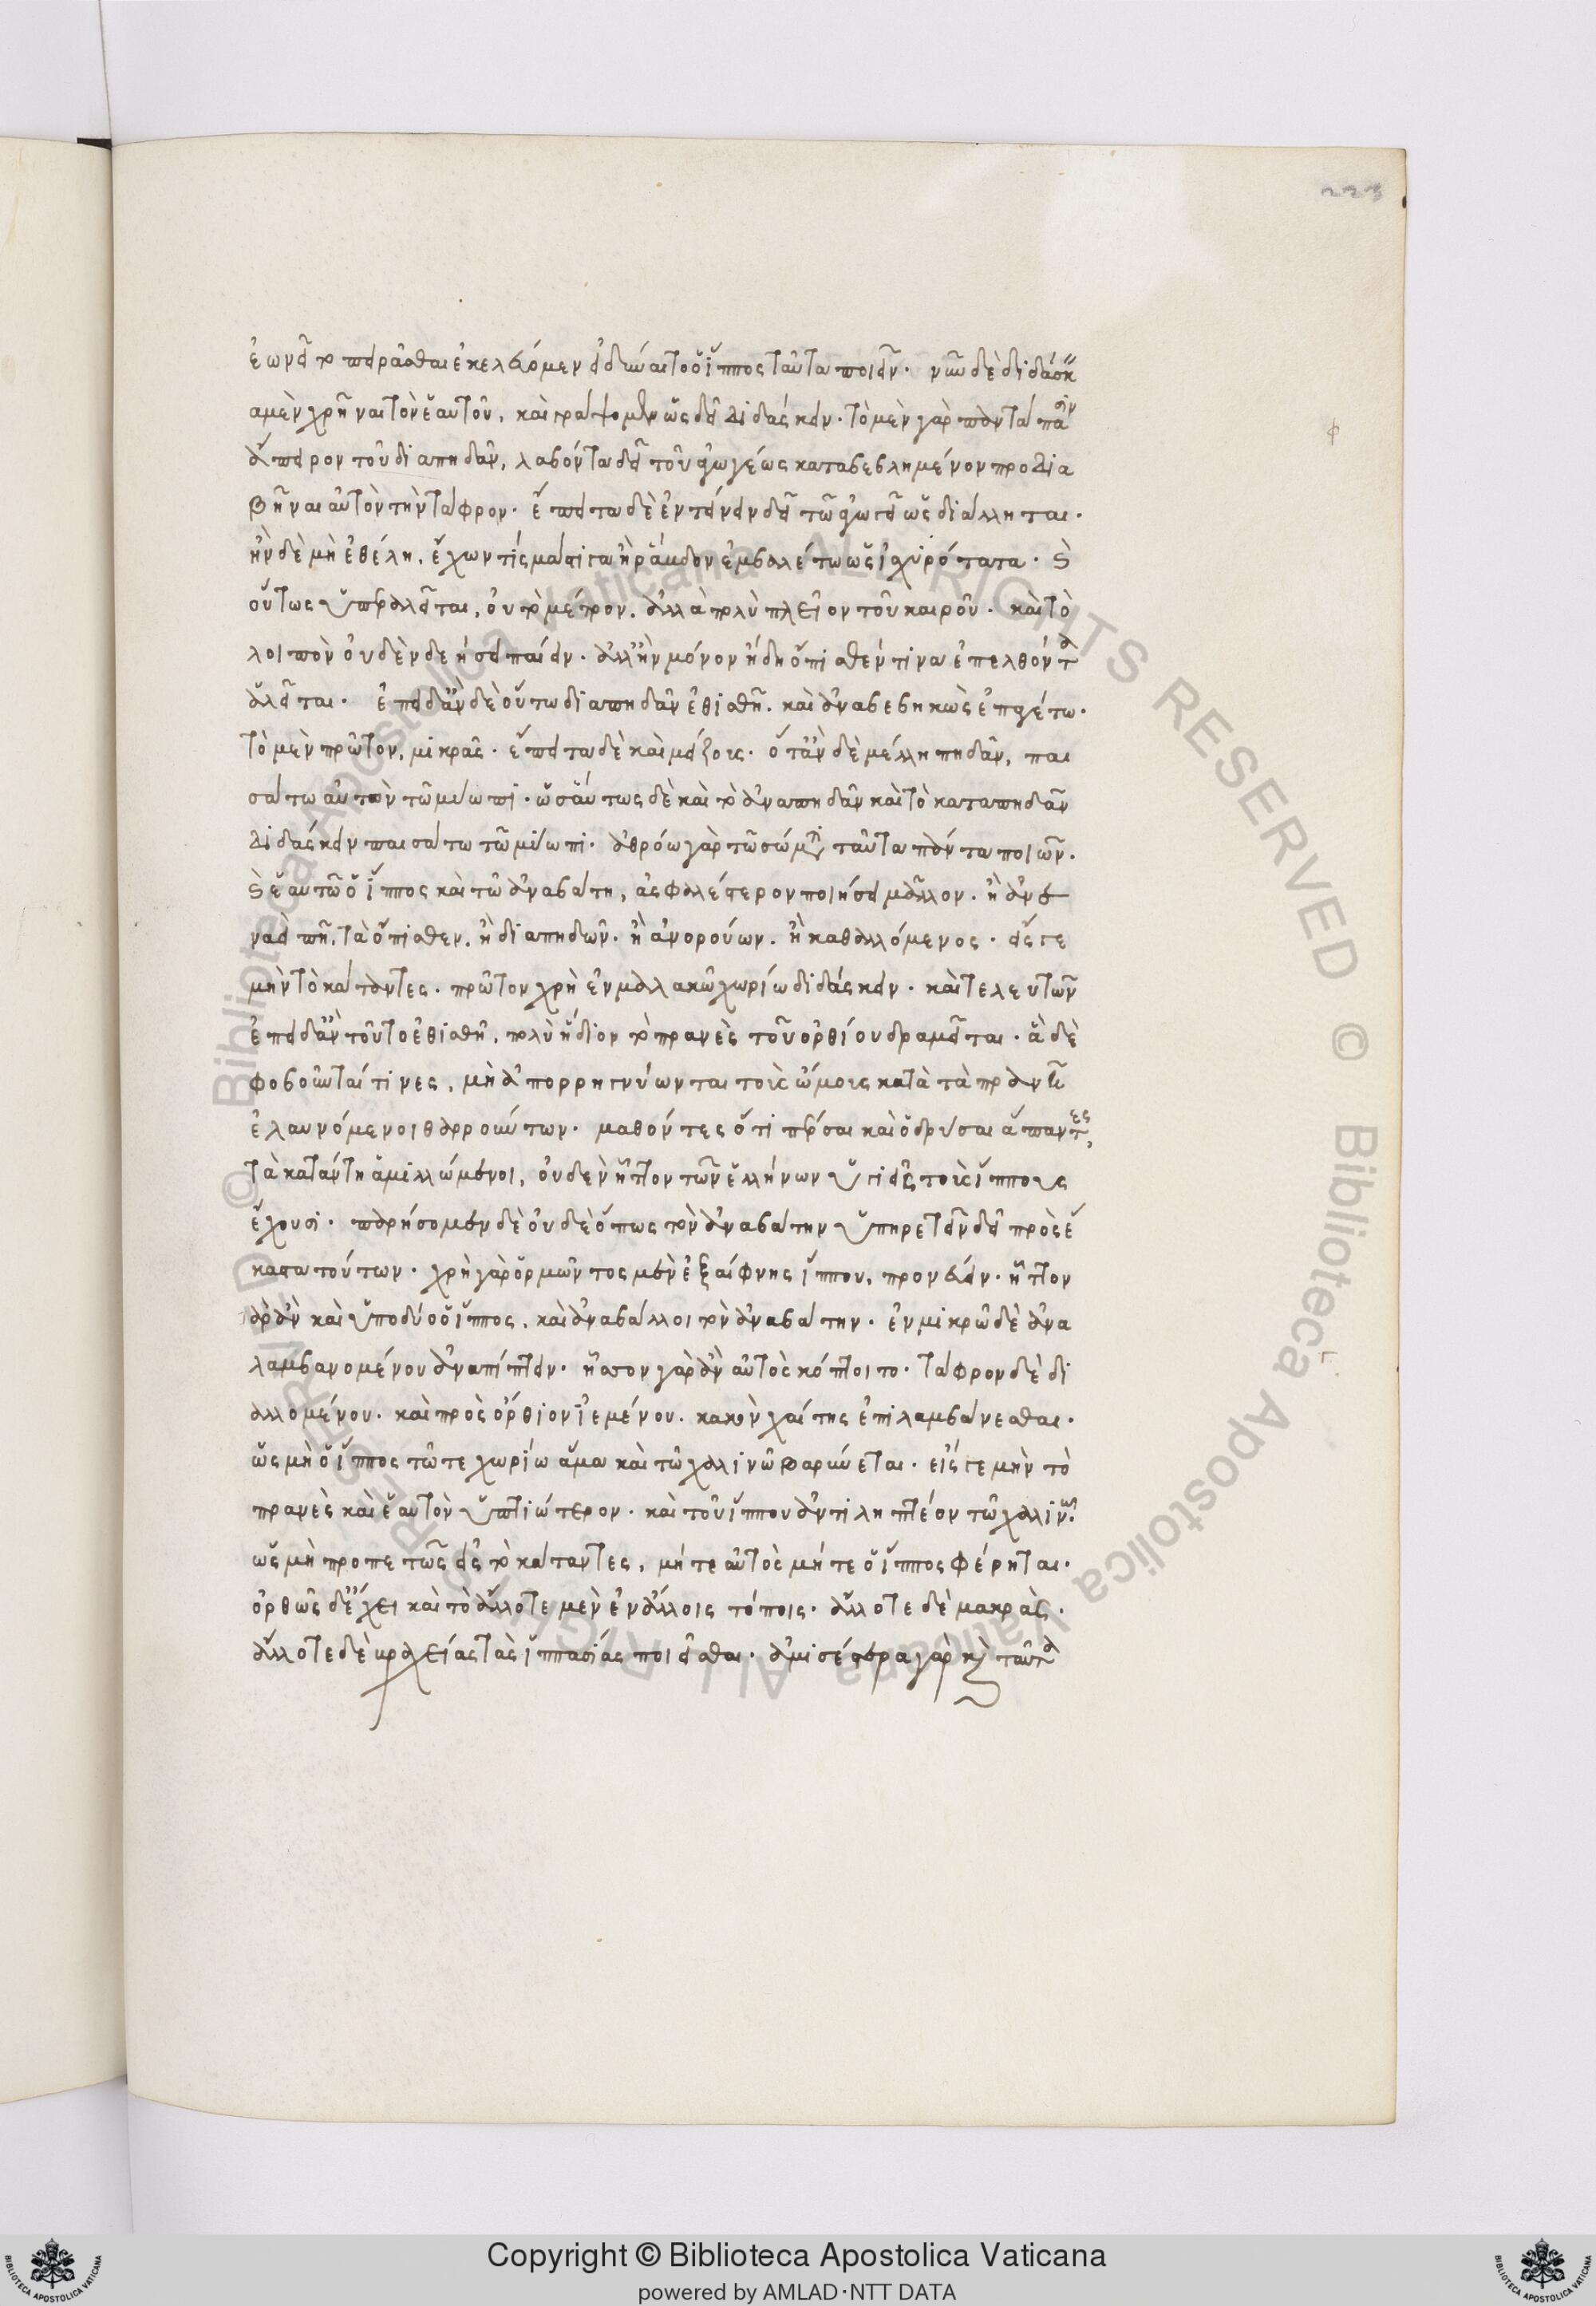 ἐωνεῖτο πειρᾶσθαι ἐκελεύομεν εἰ δύναιτο ὁ ἵππος ταῦτα ποιεῖν· νῦν δὲ διδάσκ
αμὲν χρῆναι τὸν ἑαυτοῦ, καὶ γράψομεν ὡς δεῖ διδάσκειν. τὸ μὲν γὰρ παντάπασιν
ἄπειρον τοῦ διαπηδᾶν, λαβόντα δεῖ τοῦ ἀγωγέως καταβεβλημένον προδια
βῆναι αὐτὸν τὴν τάφρον· ἔπειτα δὲ ἐντείνειν δεῖ τῶ ἀγωγεῖ ὡς διάλληται.
ἢν δὲ μὴ ἐθέλη, ἔχων τίς μάστιγα ἢ ῥάμδον ἐμβαλέτω ὡς ἰσχυρότατα· καὶ
οὕτως ὑπεραλεῖται, οὐ τὸ μέτρον. ἀλλὰ πολὺ πλεῖον τοῦ καιροῦ. καὶ τὸ
λοιπὸν οὐδὲν δεήσει παίειν. ἀλλ' ἢν μόνον ἤδη ὄπισθέν τινα ἐπελθόντα
ἁλεῖται. ἐπειδὰν δὲ οὕτω διαπηδᾶν ἐθισθῆ. καὶ ἀναβεβηκὼς ἐπαγέτω.
τὸ μὲν πρῶτον, μικρᾶς· ἔπειτα δὲ καὶ μείζοις. ὅταν δὲ μέλλη πηδᾶν, παι
σάτω αὐτὸν τῶ μύωπι· ὡσαύτως δὲ καὶ τὸ ἀναπηδᾶν καὶ τὸ καταπηδᾶν
διδάσκειν παισάτω τῶ μύωπι. ἀθρόω γὰρ τῶ σώματι ταῦτα πάντα ποιῶν.
καὶ ἑαυτῶ ὁ ἵππος καὶ τῶ ἀναβάτη, ἀσφαλέστερον ποιήσει μᾶλλον. ἢ ἂν ἐ
ναείπῃ. τὰ ὄπισθεν. ἢ διαπηδῶν. ἢ ἀνορούων. ἢ καθαλλόμενος. εἴς γε
μὴν τὸ κάταντες. πρῶτον χρὴ ἐν μαλακῶ χωρίω διδάσκειν. καὶ τελευτῶν
ἐπειδὰν τοῦτο ἐθισθῆ, πολὺ ἥδιον τὸ πρανὲς τοῦ ὀρθίου δραμεῖται. ἃ δὲ
φοβοῦνταί τινες, μὴ ἀπορρηγνύωνται τοὺς ὤμους κατὰ τὰ πρανῆ
ἐλαυνόμενοι θαρρούντων. μαθόντες ὅτι πέρσαι καὶ ὀδρύσαι ἅπαντες,
τὰ κατάντη ἁμιλλώμενοι, οὐδὲν ἧττον τῶν ἑλλήνων ὑγιεῖς τοὺς ἵππους
ἔχουσι. παρήσομεν δὲ οὐδὲ ὅπως τὸν ἀναβάτην ὑπηρετεῖν δεῖ πρὸς ἕ
καστα τούτων. χρὴ γὰρ ὁρμῶντος μὲν ἐξαίφνης ἵππου, προνεύειν. ἧττον
γὰρ ἂν καὶ ὑποδύοι ὁ ἵππος, καὶ ἀναβάλλοι τὸν ἀναβάτην. ἐν μικρῶ δὲ ἀνα
λαμβανομένου ἀναπίπτειν. ἧσσον γὰρ ἂν αὐτὸς κόπτοιτο. τάφρον δὲ δι
αλλομένου. καὶ πρὸς ὄρθιον ἱεμένου. κακὸν χαίτης ἐπιλαμβάνεσθαι.
ὡς μὴ ὁ ἵππος τῶ τε χωρίω ἅμα καὶ τῶ χαλινῶ βαρύνεται. εἴς γε μὴν τὸ
πρανὲς καὶ ἑαυτὸν ὑπτιώτερον. καὶ τοῦ ἵππου ἀντιληπτέον τῶ χαλινῶ.
ὡς μὴ προπετῶς εἰς τὸ κάταντες, μήτε αὐτὸς μήτε ὁ ἵππος φέρηται.
ὀρθῶς δ' ἔχει καὶ τὸ ἄλλοτε μὲν ἐν ἄλλοις τόποις. ἄλλοτε δὲ μακρὰς.
ἄλλοτε δὲ βραχείας τὰς ἱππασίας ποιεῖσθαι. ἀμισέστερα γὰρ καὶ ταῦτα